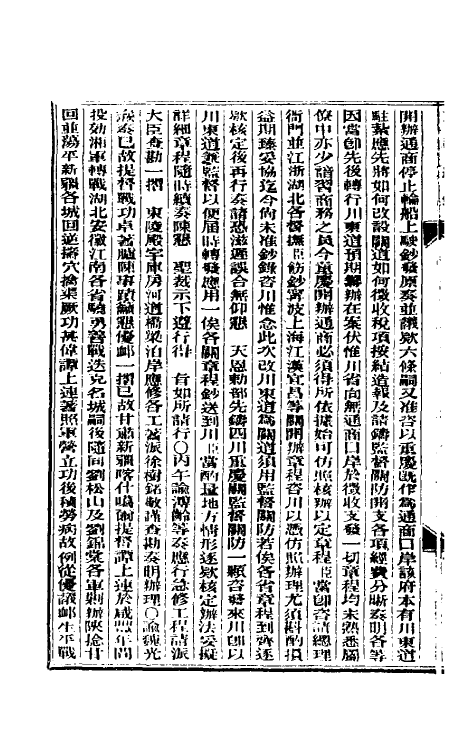 開辦通商停止輪船上駛鈔發原奏並議欵六條嗣又准咨以重慶既作爲通商口岸該府本有川東道
駐紮應先將如何改設關道如何徵收稅項按結造報及請鑄監督關防開支各項經費分晰奏明各等
因當卽先後轉行川東道預期籌辦在案伏惟川省向無通商口岸於徵收支發一切章程均未熟悉屬
僚中亦少諳習商務之員今重慶開辦通商必須得所依據始可仿照核辦以定章程臣當卽咨請總理
衙門並江浙湖北各督撫臣飭鈔寧波上海江漢宜昌等關開辦章程咨川以憑仿照辦理尤須斟酌損
益期臻妥協迄今尙未准鈔錄咨川惟念此次改川東道爲關道須用監督關防若俟各省章程到齊逐
欵核定後再行奏請恐滋遲誤合無仰懇　天恩勅部先鑄四川重慶關監督關防一顆咨發來川卽以
川東道兼監督以便屆時轉發應用一俟各關章程鈔送到川臣當酌量地方情形逐欵核定辦法妥擬
詳細章程隨時續奏陳懇　聖裁示下遵行得　旨如所請行〇丙午諭溥齡等奏應行急修工程請派
大臣查勘一摺　東陵殿宇庫房河道橋梁泊岸應修各工著派徐樹銘敬謹查勘奏明辦理〇諭魏光
燾奏已故提督戰功卓著臚陳事蹟籲懇優卹一摺已故甘肅新疆喀什噶爾提督譚上連於咸豐年間
投効湘軍轉戰湖北安徽江南各省驍勇善戰迭克名城嗣後隨同劉松山及劉錦棠各軍剿辦陝捻甘
回並蕩平新疆各城回逆搗穴擒渠厥功甚偉譚上連著照軍營立功後積勞病故例從優議卹生平戰